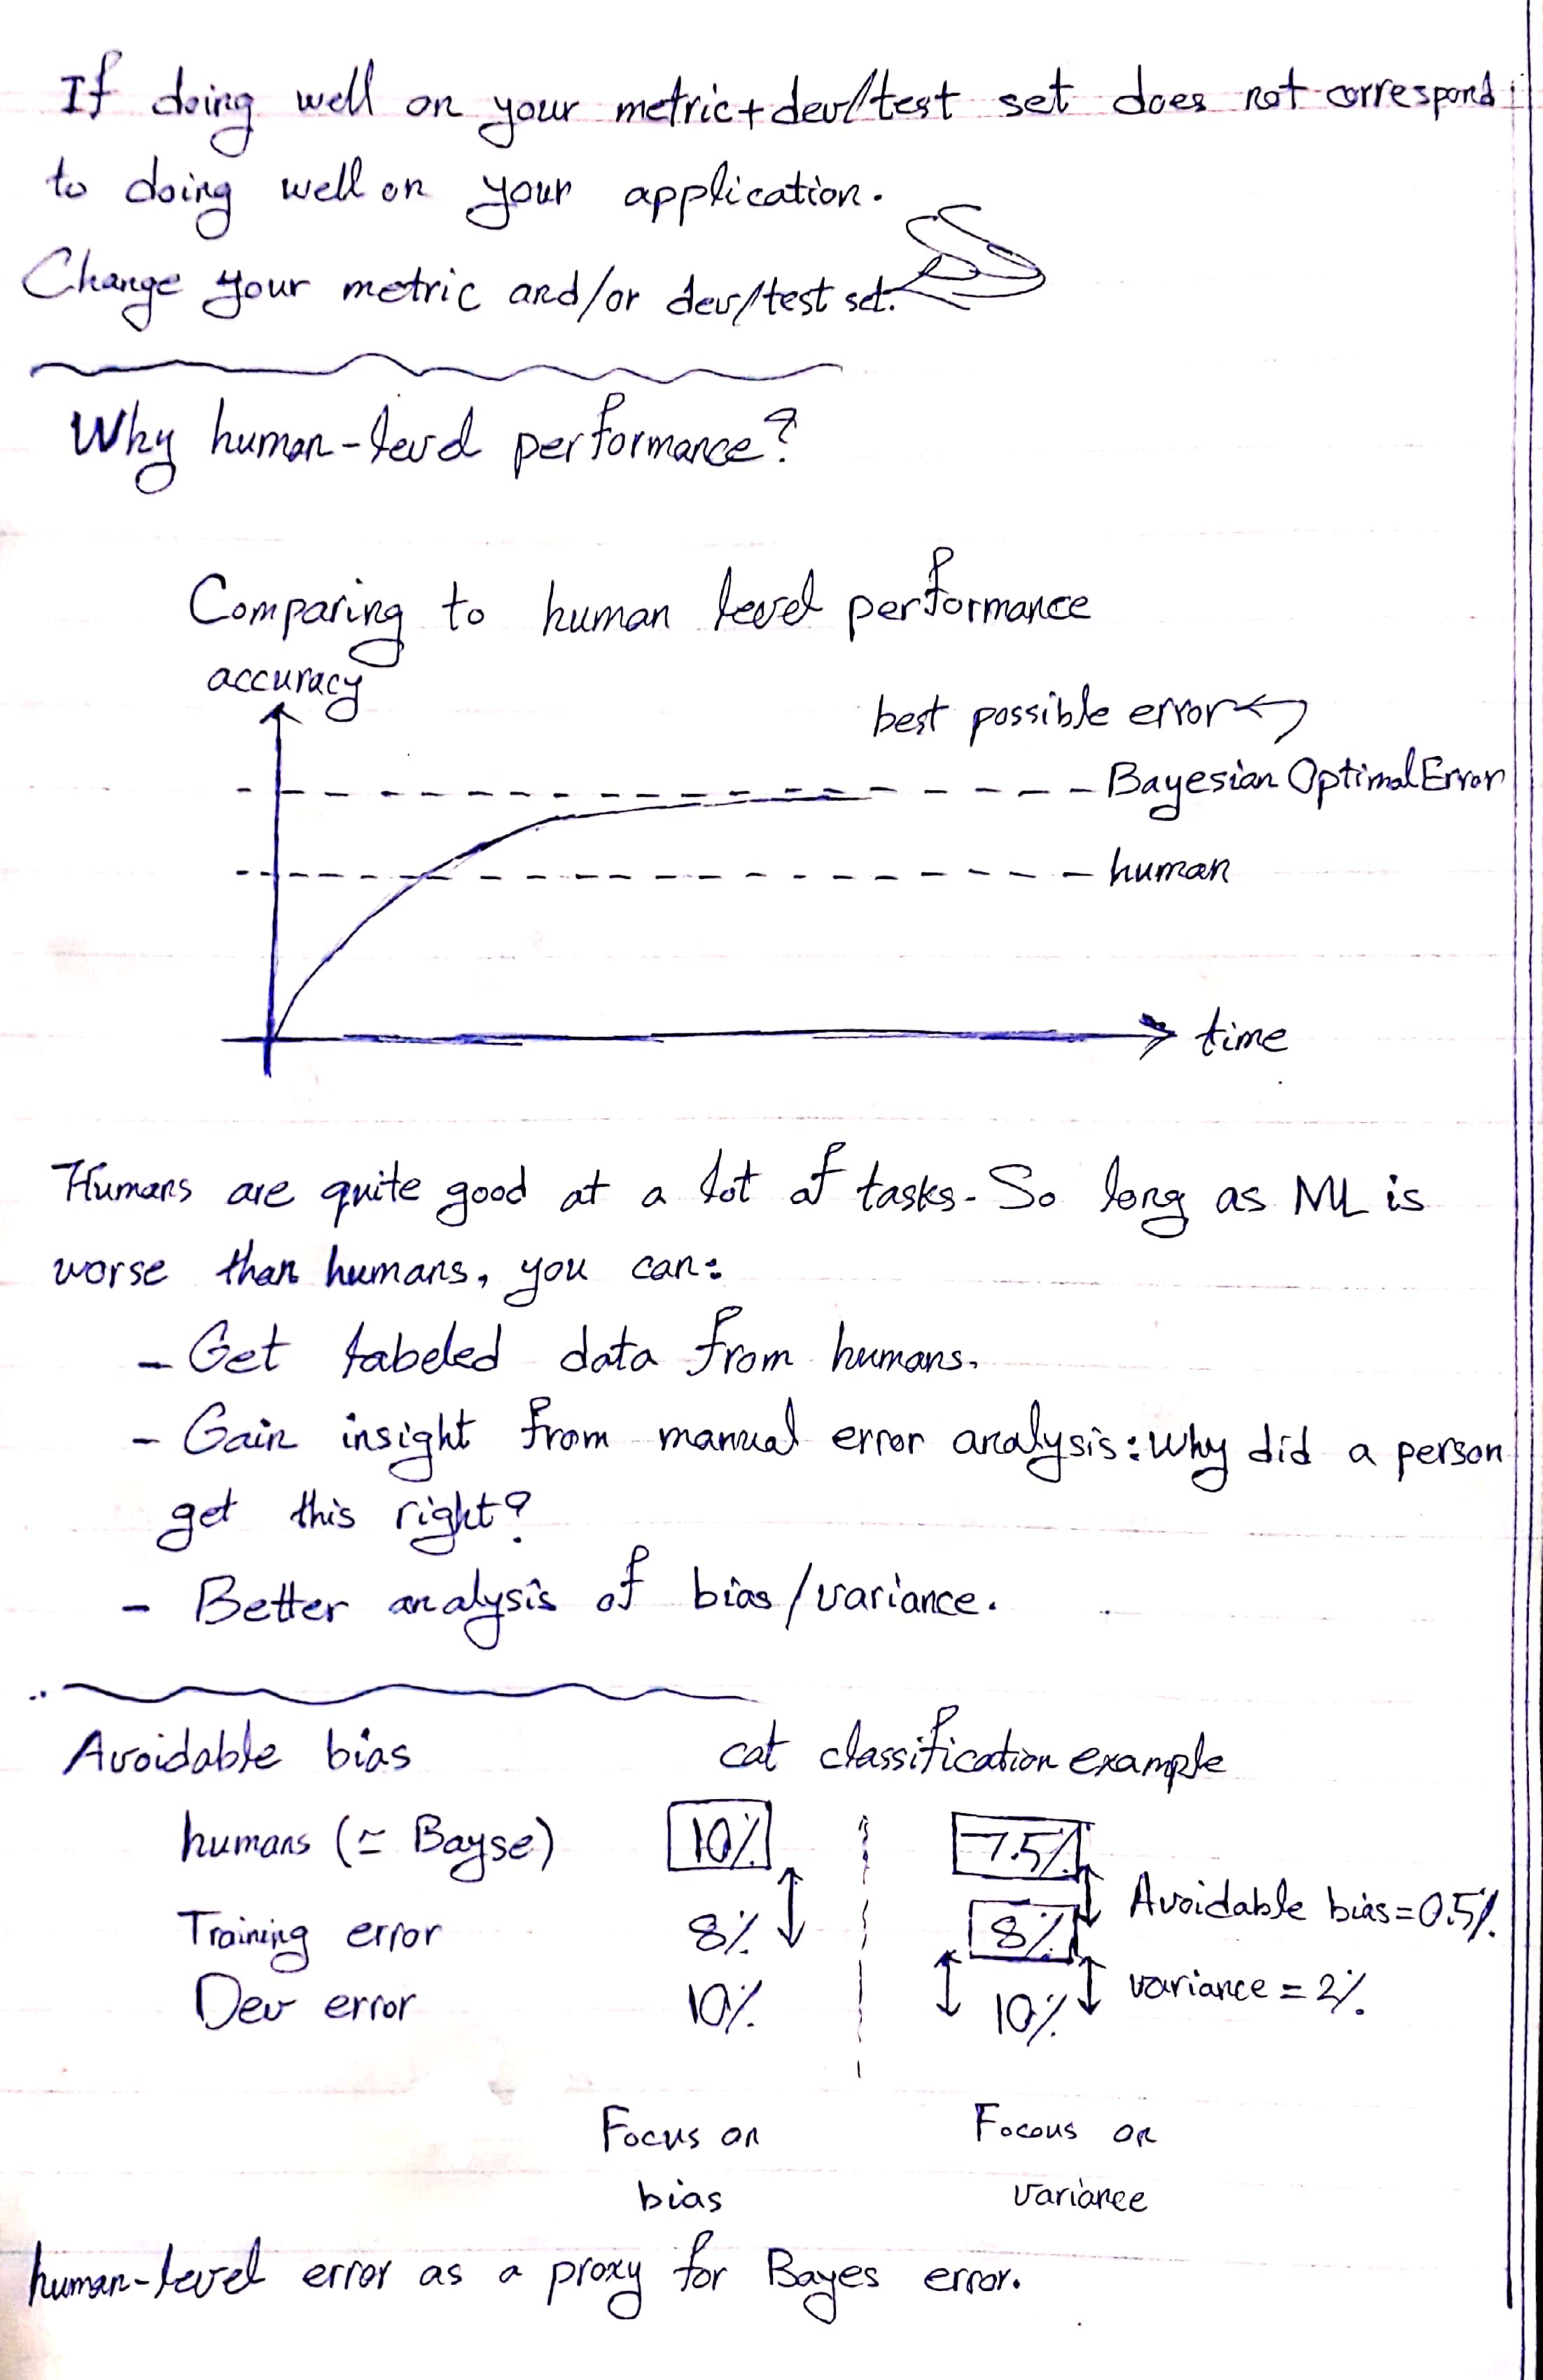 If doing well on your metric+dev/test set does not correspond
to doing well on your application.
Change your metric and/or dev/test set.
Why human-level performance?
Comparing to human level performance
accuracy
best possible error
Bayesian Optimal Error
human
time
Humans are quite good at a lot of tasks. So long as ML is
worse than humans, you can:
- Get labeled data from humans.
- Gain insight from manual error analysis: why did a person
get this right?
- Better analysis of bias/variance.
Avoidable bias cat classification example
humans (≃ Bayse) 10% 7.5%
Avoidable bias = 0.5%
Training error 8% 8%
variance = 2%
Dev error 10% 10%
Focus on Focous on
bias variance
human-level error as a proxy for Bayes error.